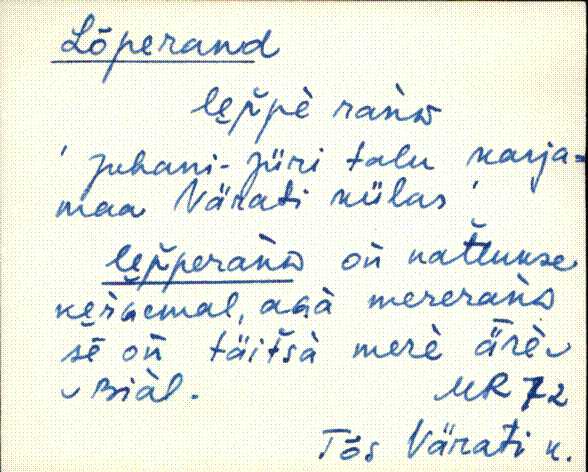 Lõperand
lep̆pè rańᴅ
' Juhani-Jüri talu karja=
maa Värati külas '
lep̆perańᴅ oń nat̆tukse
kerǵemal, agà mererańᴅ
sē oń täit̆sà merè ǟrè
ᴗ ʙiàl. MR 72
Tõs Värati k.